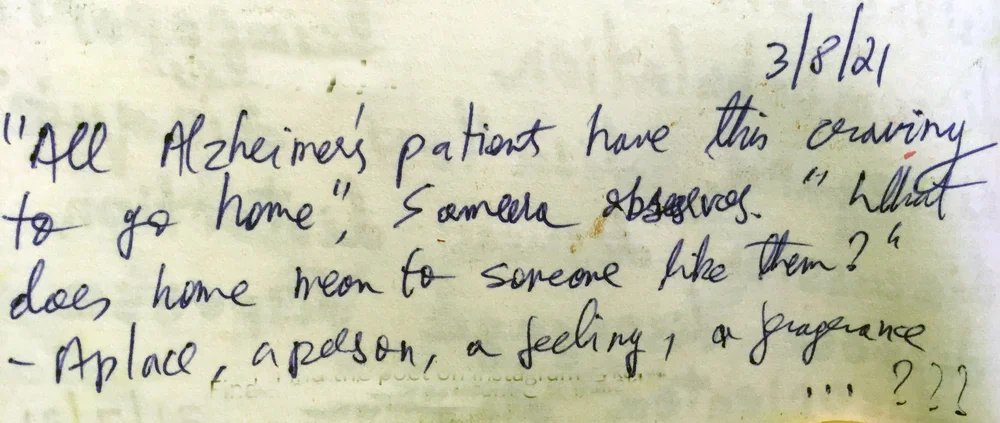 3/8/21
"All Alzheimer's patients have this craving
to go home", Sameera observes. "What
does home mean to someone like them?"
- A place, a person, a feeling, a fragerance
... ???